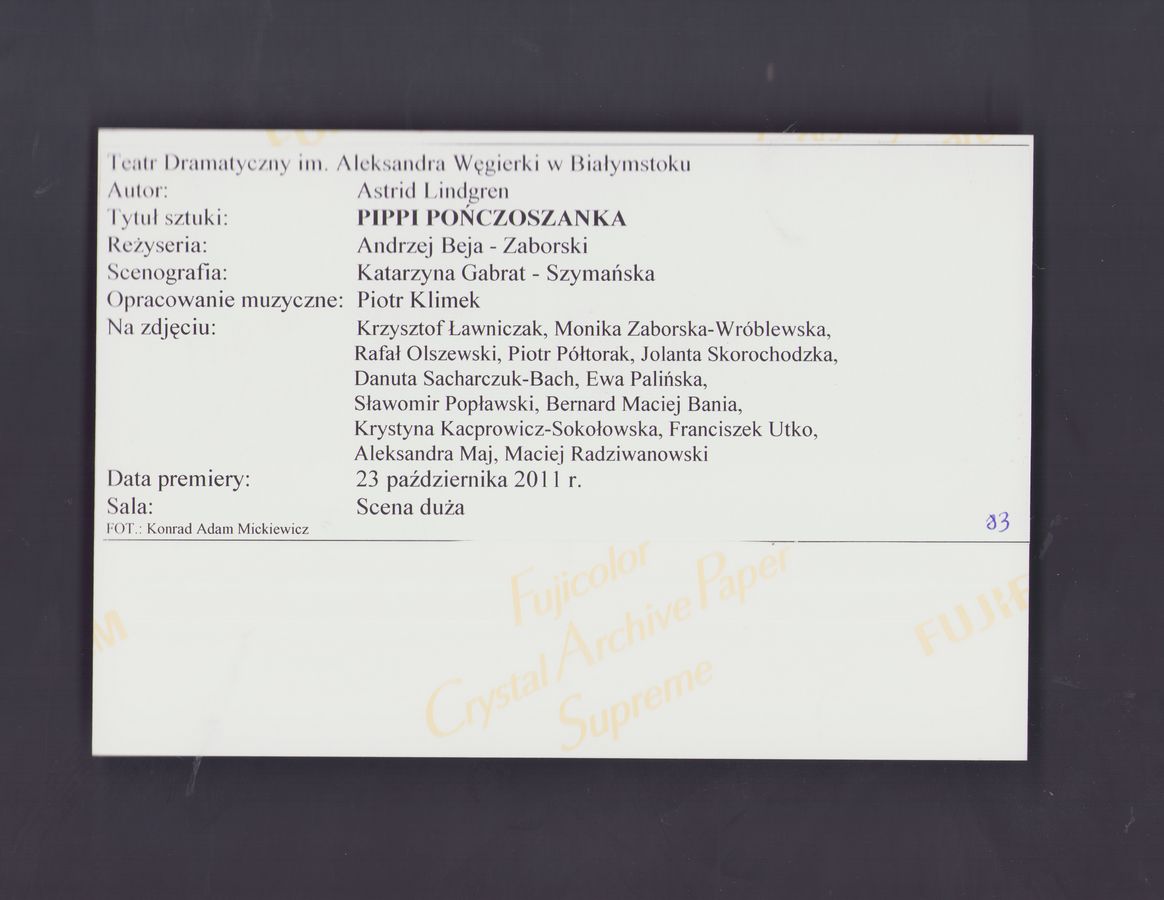 Teatr Dramatyczny im. Aleksandra Węgierki w Białymstoku
Autor: Astrid Lindgren
Tytuł sztuki: PIPPI POŃCZOSZANKA
Reżyseria: Andrzej Beja - Zaborski
Scenografia: Katarzyna Gabrat - Szymańska
Opracowanie muzyczne: Piotr Klimek
Na zdjęciu: Krzysztof Ławniczak, Monika Zaborska-Wróblewska,
Rafał Olszewski, Piotr Półtorak, Jolanta Skorochodzka,
Danuta Sacharczuk-Bach, Ewa Palińska,
Sławomir Popławski, Bernard Maciej Bania,
Krystyna Kacprowicz-Sokołowska, Franciszek Utko,
Aleksandra Maj, Maciej Radziwanowski
Data premiery: 23 października 2011 r.
Sala: Scena duża
FOT.: Konrad Adam Mickiewicz
Fujicolor
Crystal Archive Paper
Supreme